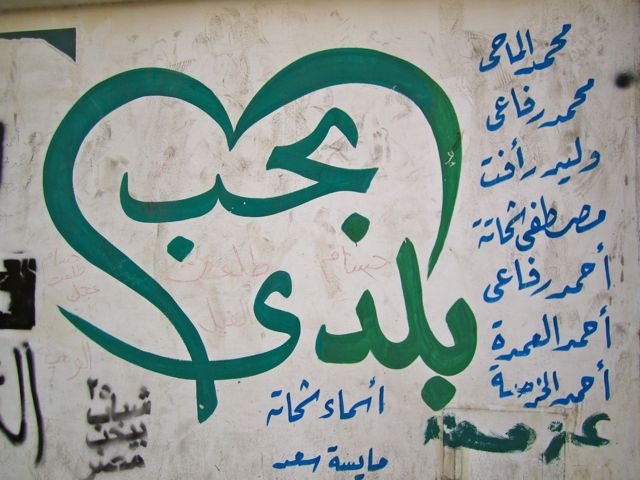 بحب
بلدى
محمد الماحى
محمد رفاعى
وليد رأفت
مصطفى شحاتة
أحمد رفاعى
أحمد العمدة
أحمد
أسماء شحاتة
مايسة سعد
حسام طلعت
شباب
بيحب
مصر